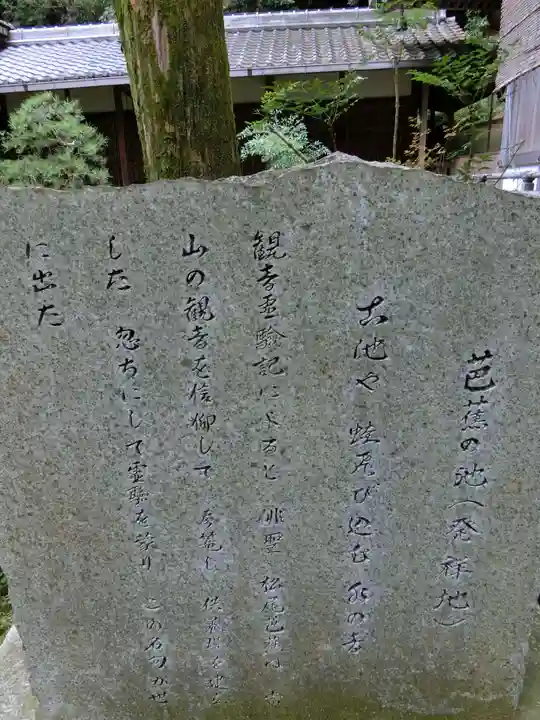 芭蕉の池（発祥地）
古池や 蛙飛び込む 水の音
観音霊験記によると 俳聖 松尾芭蕉は 当
山の観音を信仰して 参篭し 供養塔を建立
した 忽ちにして霊験を蒙り この名句が世
に出た